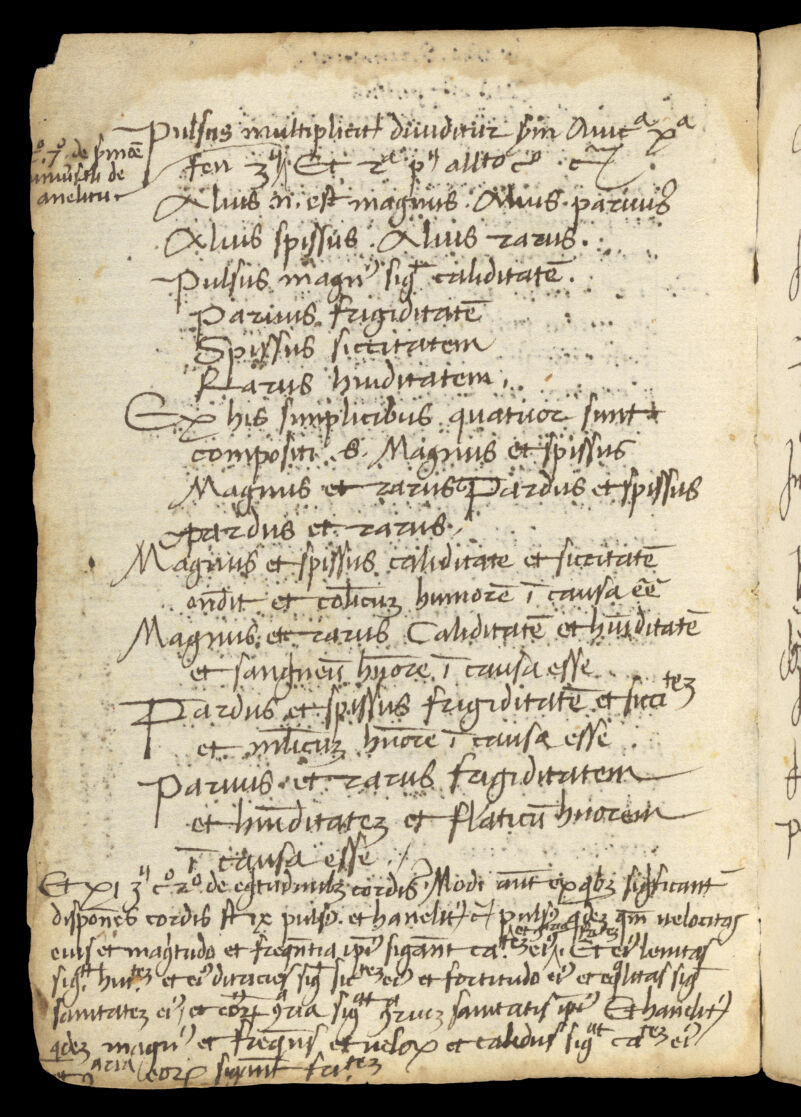 Pulsus multiplicit̃ diuiditur sm̃ Auicᵃ pᵃ
fen 3ij Et 2ᵃ pⁱⁱ
c. 7. de
anelitu
Alius .n. est magnus. Alius paruus
Alius spissus. Alius rarus.
Pulsus magn⁹ sig̃ caliditatē.
Paruus frigiditatē
Spissus siccitatem
Rarus humiditatem.
Ex his simplicibus quatuor sunt
compositi .s. Magnus et spissus
Magnus et rarus Pardus et spissus
pardus et rarus
Magnus et spissus caliditatē et siccitatē
on̄dit et col̄icuȝ humorē ī causa eē
Magnus et rarus Caliditatē et hūiditatē
et sanguneū hūorē ī causa esse
Pardus et spissus frigiditatē et siccitēȝ
et ml̄icuȝ hūorē ī causa esse
Paruus et rarus frigiditatem
et hūiditateȝ et flaticū hūorem
ī causa esse
Et XI 3ij c⁰ 2⁰ de egritudinibȝ cordis. Modi aūt ex qbȝ significant
dispōnes cordis st̄ ix puls⁹ et hanelit⁹ puls⁹ qdeȝ qm̄ uelocitas
eius et magtudo et freqn̄tia ip̄i⁹ sigānt caᵗᵉȝ ei⁹. Et ei⁹ lenitas
sigᵃᵗ huᵗᵉȝ et ei⁹ duricies sig̃ sicᵗᵉȝ ei⁹ et fortitudo ei⁹ et eq̄litas sig̃
sanitateȝ ei⁹ et ꝯria sigᵃᵗ sanitatis ip̄i⁹ Et hanelit⁹
qdeȝ magn⁹ et freqn̄s et uelox et calidus sigᵃᵗ caᵗᵉȝ ei⁹
et ꝯᵃʳⁱᵃ eoꝝ sigānt friᵗᵉȝ